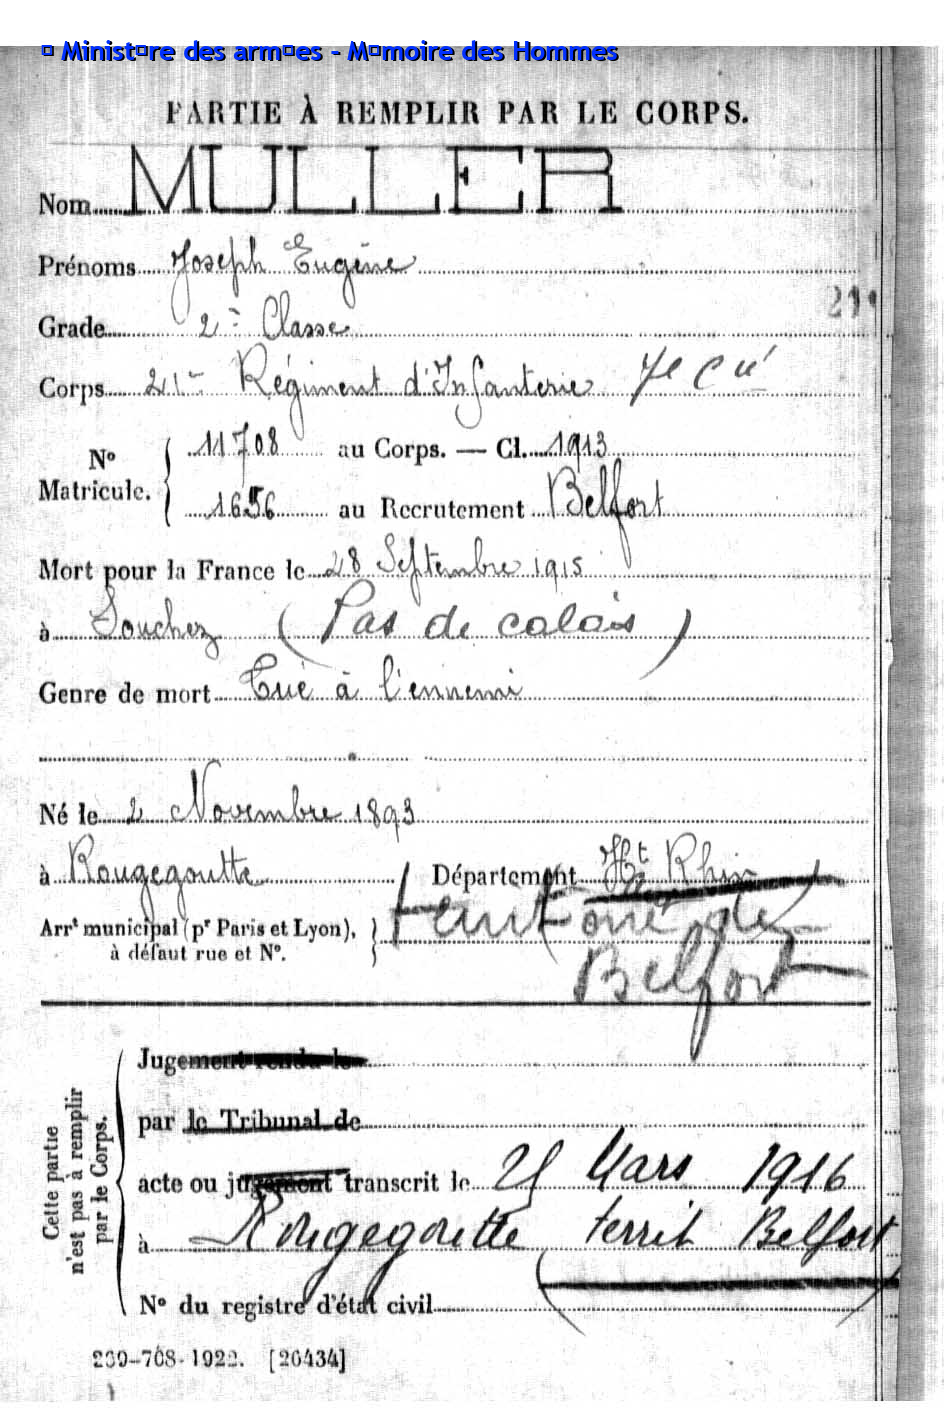 � Minist�re des arm�es - M�moire des Hommes
PARTIE À REMPLIR PAR LE CORPS.
Nom MULLER
Prénoms Joseph Eugène
Grade 2e Classe
Corps 21e Régiment d'Infanterie
N° Matricule. 11708 au Corps. — Cl. 1913
1656 au Recrutement Belfort
Mort pour la France le 28 Septembre 1915
à Souchez (Pas de calais)
Genre de mort Tué à l'ennemi
Né le 2 Novembre 1893
à Rougegoutte Département Ht Rhin
Arrt municipal (pr Paris et Lyon), à défaut rue et N°.
territoire de
Belfort
Cette partie n'est pas à remplir par le Corps.
Jugement rendu le
par le Tribunal de
acte ou jugement transcrit le Mars 1916
à Rougegoutte territ Belfort
N° du registre d'état civil
[26434]